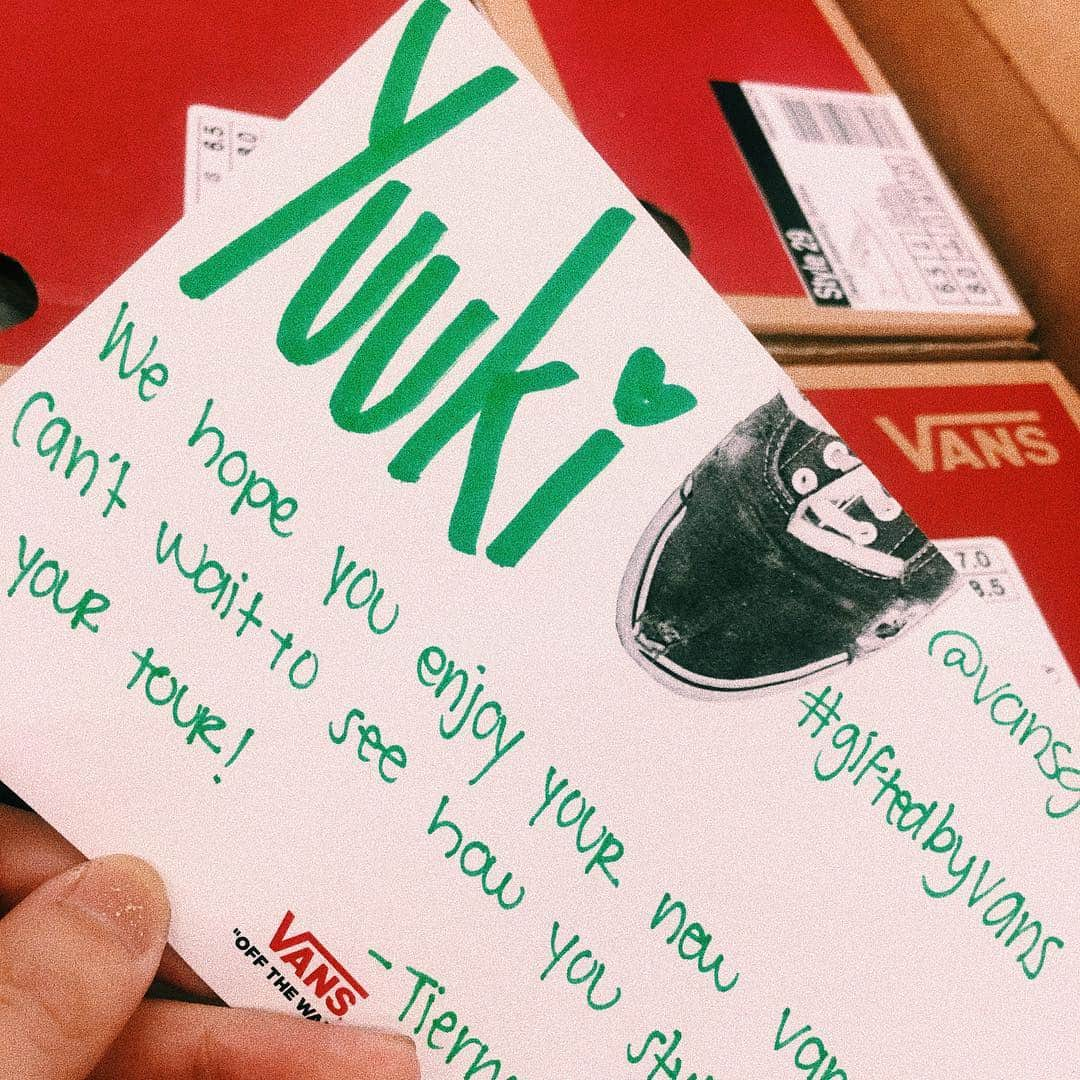 Yuuki
We hope you enjoy your new van
can't wait to see how you sty
your tour!
- Tiern
@vansg
#giftedbyvans
VANS
"OFF THE WA
VANS
Style 29
6.5
8.0
7.0
8.5
8.5